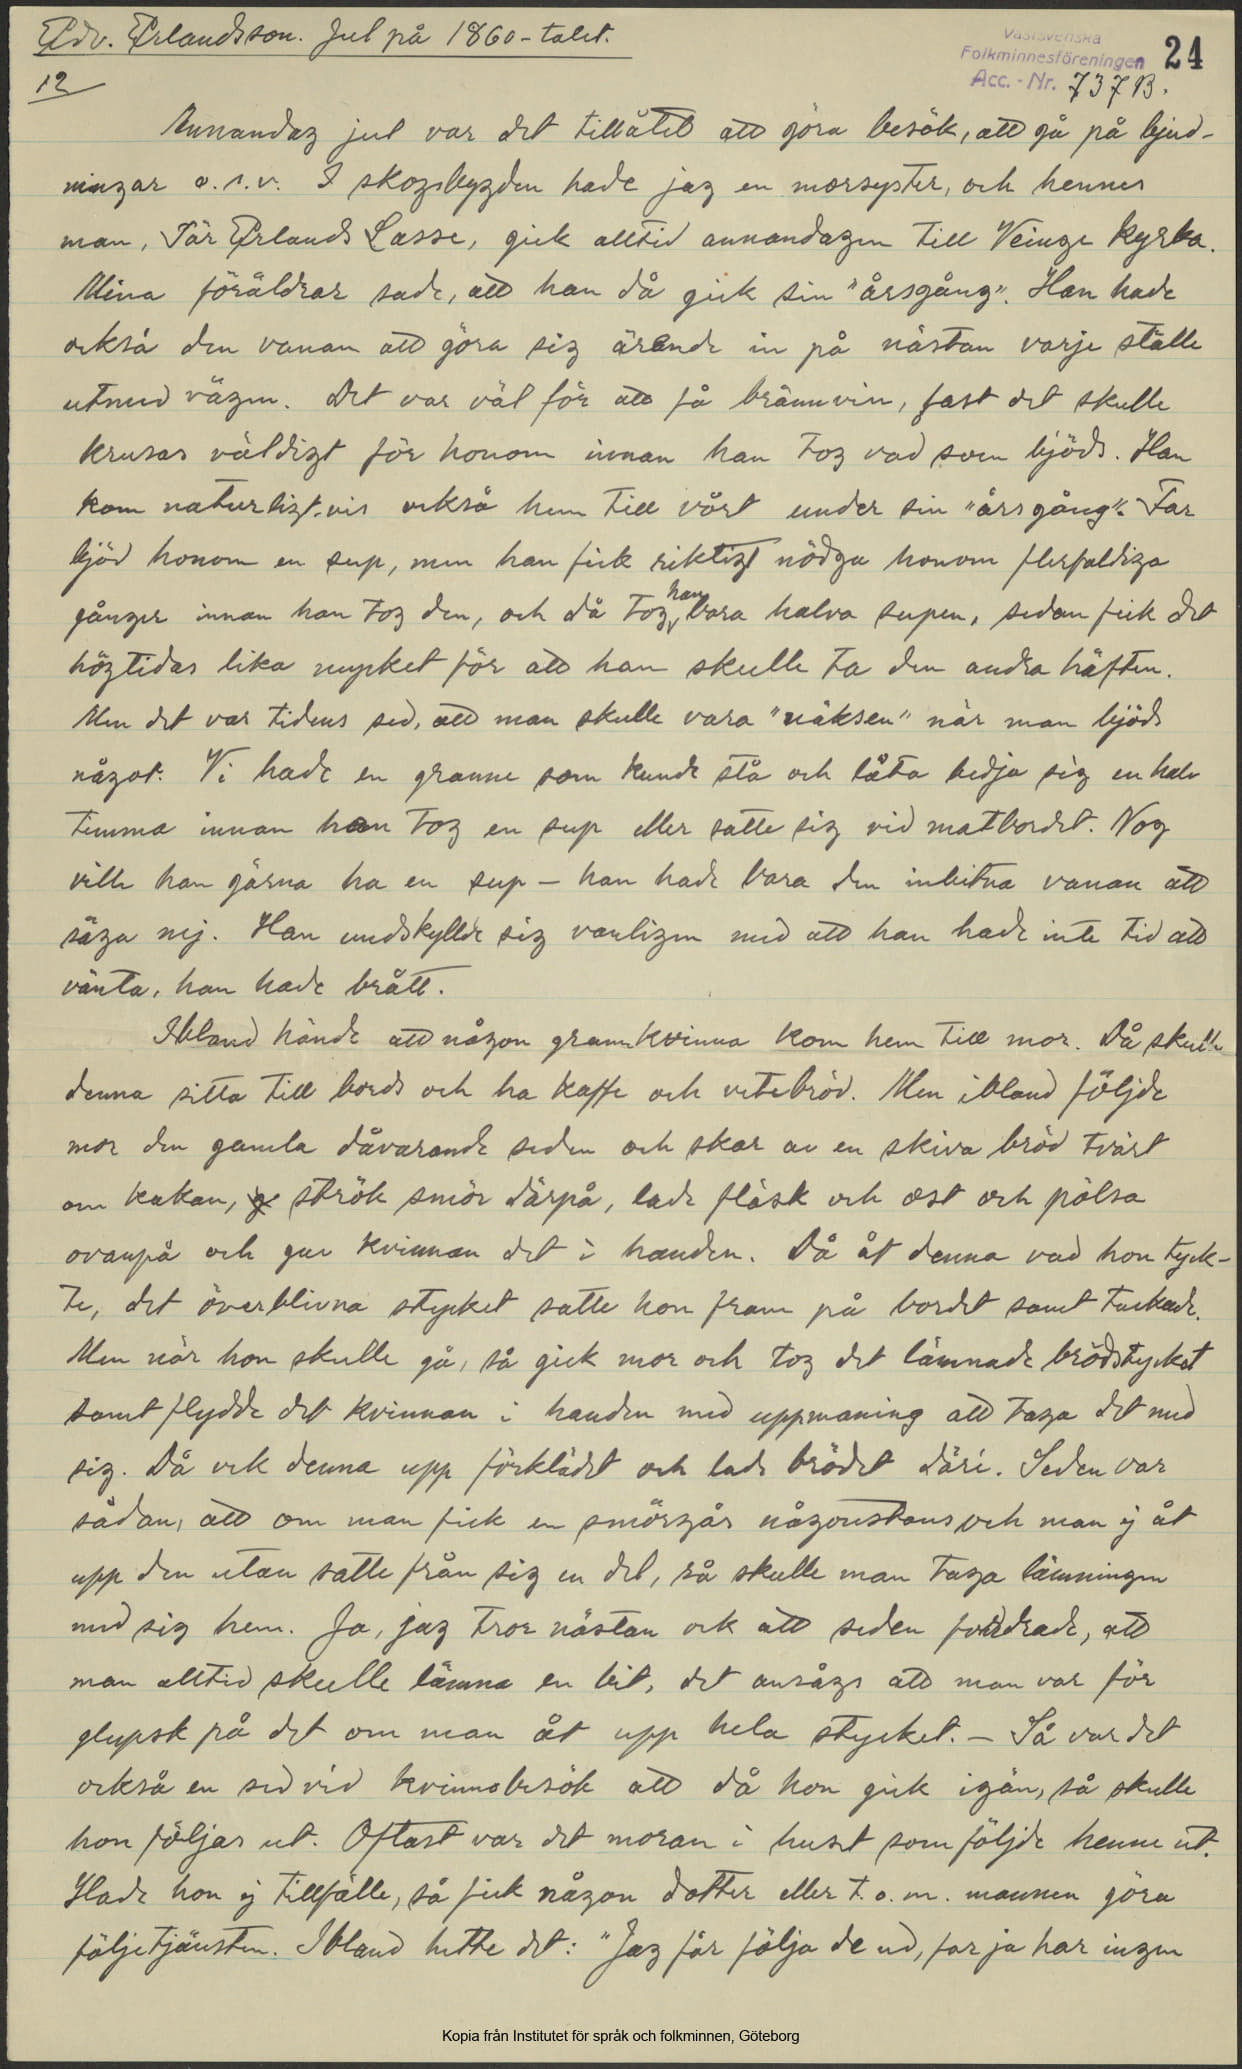 Edv. Erlandsson. Jul på 1860-talet.
Västsvenska
Folkminnesföreningen 24
Acc. - Nr. 737 B.
12
Annandag jul var det tillåtet att göra besök, att gå på bjud-
ningar o.s.v. I skogsbygden hade jag en morsyster, och hennes
man, Pär Erlands Lasse, gick alltid annandagen till Veinge kyrka.
Mina föräldrar sade, att han då gick sin "årsgång". Han hade
också den vanan att göra sig ärende in på nästan varje ställe
utmed vägen. Det var väl för att få brännvin, fast det skulle
krusas väldigt för honom innan han tog vad som bjöds. Han
kom naturligtvis också hem till vårt under sin "årsgång". Far
bjöd honom en sup, men han fick riktigt nödga honom flerfaldiga
gånger innan han tog den, och då tog han bara halva supen, sedan fick det
högtidas lika mycket för att han skulle ta den andra häften.
Men det var tidens sed, att man skulle vara "näksen" när man bjöds
något. Vi hade en granne som kunde stå och låta bedja sig en halv
timma innan han tog en sup eller satte sig vid matbordet. Nog
ville han gärna ha en sup – han hade bara den inbitna vanan att
säga nej. Han undskyllde sig vanligen med att han hade inte tid att
vänta, han hade brått.
Ibland hände att någon grannkvinna kom hem till mor. Då skulle
denna sitta till bords och ha kaffe och vetebröd. Men ibland följde
mor den gamla dåvarande seden och skar av en skiva bröd tvärt
om kakan, strök smör därpå, lade fläsk och ost och pölsa
ovanpå och gav kvinnan det i handen. Då åt denna vad hon tyck-
te, det överblivna stycket satte hon fram på bordet samt tackade.
Men när hon skulle gå, så gick mor och tog det lämnade brödstycket
samt flydde det kvinnan i handen med uppmaning att taga det med
sig. Då vek denna upp förklädet och lade brödet däri. Seden var
sådan, att om man fick en smörgås någonstans och man ej åt
upp den utan satte från sig en del, så skulle man taga lämningen
med sig hem. Ja, jag tror nästan ock att seden fordrade, att
man alltid skulle lämna en bit, det ansågs att man var för
glupsk på det om man åt upp hela stycket. – Så var det
också en sed vid kvinnobesök att då hon gick igän, så skulle
hon följas ut. Oftast var det moran i huset som följde henne ut.
Hade hon ej tillfälle, så fick någon dotter eller t.o.m. mannen göra
följetjänsten. Ibland hette det: "Jag får följa de ud, for ja har ingen
Kopia från Institutet för språk och folkminnen, Göteborg